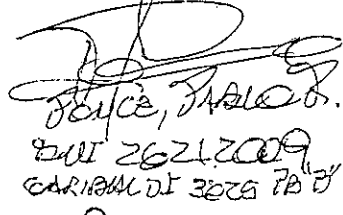 PONCE, PABLO R.
DNI 26.212.009
GARIBALDI 3025 PB "D"